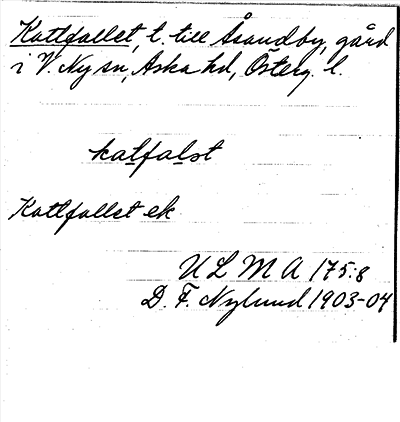 Kattfallet, t. till Åsandby, gård
i V. Ny sn, Aska hd, Österg. l.
kalfalst
Kattfallet ek
ULMA 175:8
D. F. Nylund 1903-04